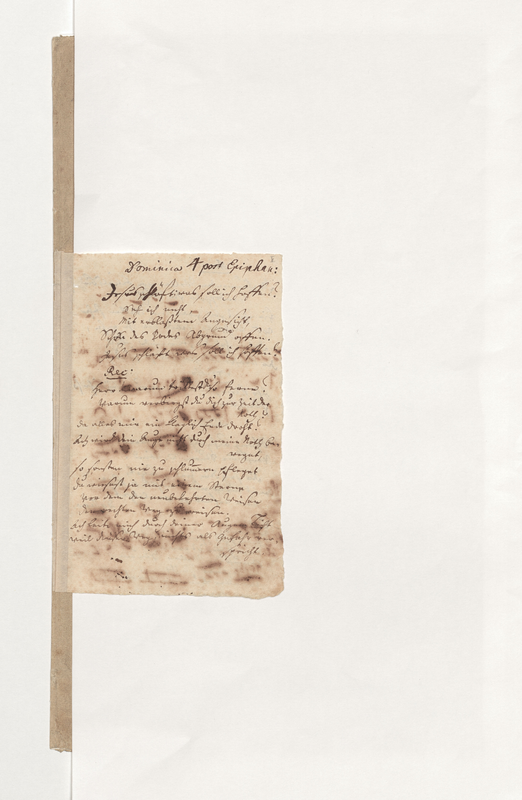 Dominica 4 post Epiphan:
Jesus schläft was soll ich hoffen?
Seh ich nicht
Mit erblaßtem Angesicht,
Schon des Todes Abgrund offen.
Jesus schläft was soll ich hoffen?
Rec:
Herr warum trittstu so ferne?
Warum verbirgst du dich zur Zeit der
Noth?
da alles mir ein kläglich Ende droht?
Ach wird dein Auge nicht durch meine Noth be
wegt,
so sonsten nie zu schlummern pfleget
du wiesest ja mit einem Sterne
vor dem den neubekehrten Weisen
den rechten Weg zu reisen.
Ach leite mich durch deiner Augen Licht
weil dieser Weg nichts als Gefahr ver
spricht